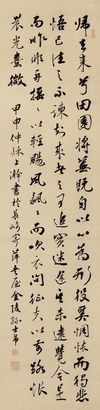 歸去来兮田園將蕪既自以心為形役奚惆悵而獨悲
悟已往之不諫知来者之可追實迷途其未遠覺今是
而昨非舟搖〻以輕颺風飄〻而吹衣問征夫以前路恨
晨光熹微 甲申仲秋上澣書於長崎寄萍老屋金陵孫士希